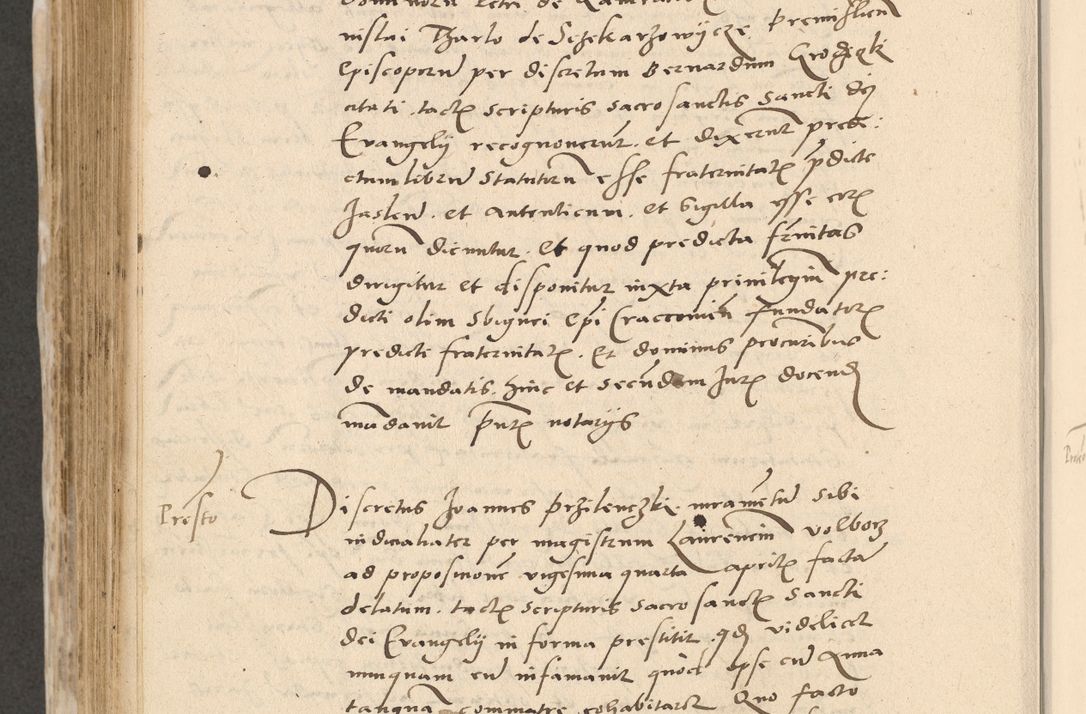 nislai Tharlo de Sczekarzowycze premislien
Episcoporum per discretum Bernardum GrodzCzki
citati, tactis scripturis sacrosanctis sancti dei
Evangelij recognoverunt, et dixerunt prede:
ctum librum statutorum esse fraternitatis predicte
Jaslen, et autenticum, et sigilla esse eorum
quorum dicuntur, et quod predicta fraternitas
dirigitur et disponitur iuxta privilegium pre:
dicti olim Sbignei Epi Cracovien fundatoris
predicti fraternitatis, et dominis procuratoribus
de mandatis hinc et secundum Juris docendi
mandavit presentis notarijs
Presto
Discretus Joannes Przilenczki, iuramentum sibi
iudicialiter per magistrum Laurencium Volborz
ad propositionem vigesima quarta aprilis facta
delatum, tactis scripturis sacrosanctis sancti
dei Evangelij in forma prestitit, quod videlicet
nunquam eum infamavit quod ipse cum Anna
tanquam commatre cohabitaret Quo facto